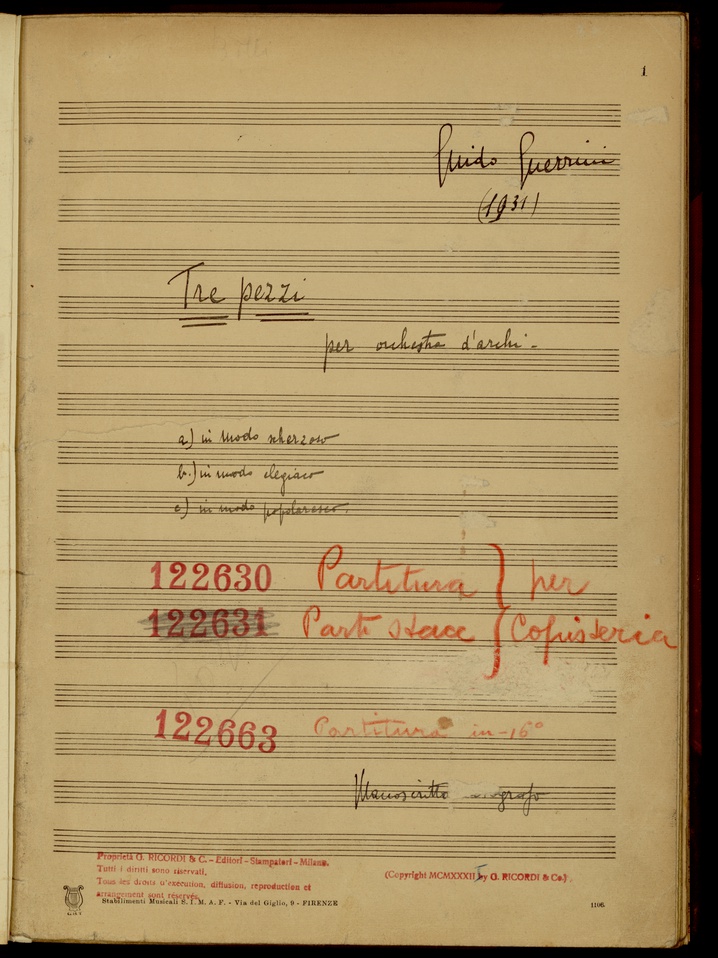 1
Guido Guerrini
(1931)
Tre pezzi
per orchestra d'archi -
a) in modo scherzoso
b.) in modo elegiaco
c) in modo popolaresco.
122630 Partitura } per
122631 Parti stacc } Copisteria
122663 Partitura in-16°
Manoscritto
Proprietà G. RICORDI & C. - Editori - Stampatori - Milano.
Tutti i diritti sono riservati.
Tous les droits d'exécution, diffusion, reproduction et
arrangement sont réservés.
(Copyright MCMXXXII by G. RICORDI & Co.)
Stabilimenti Musicali S. I. M. A. F. - Via del Giglio, 9 - FIRENZE
1106